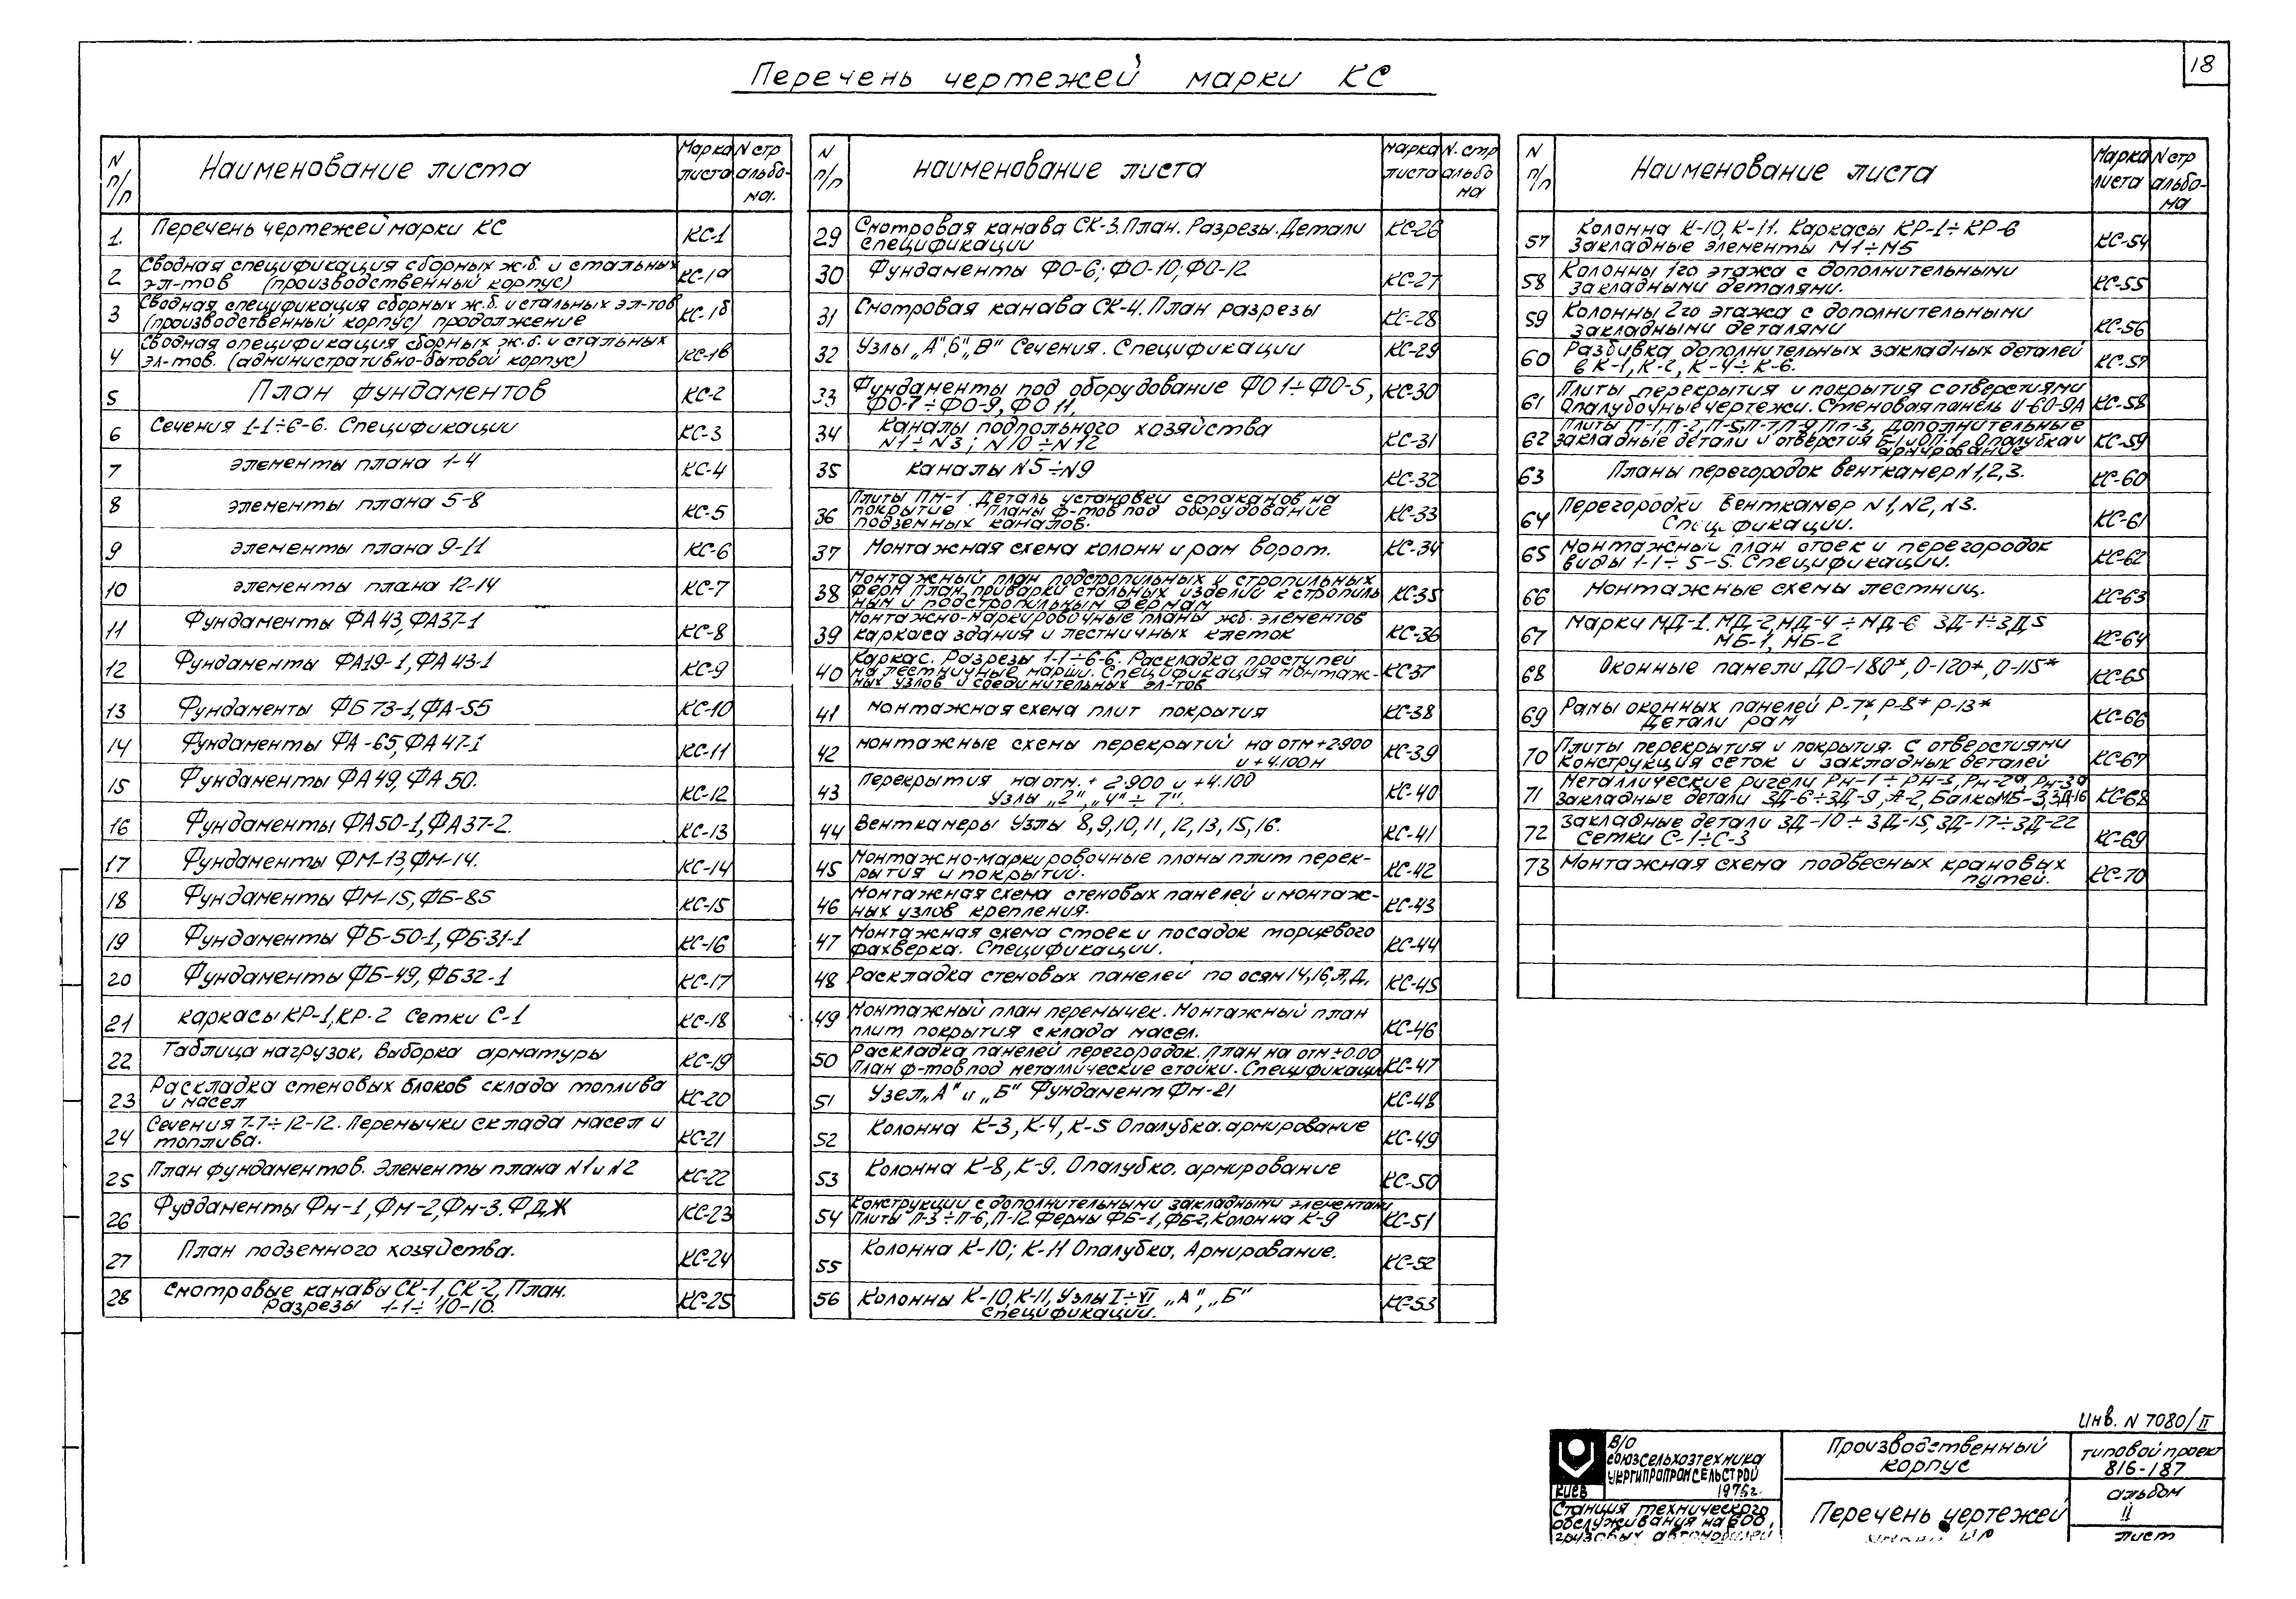 18
Перечень чертежей марки КС
N п/п
Наименование листа
Марка листа
N стр альбо-ма.
1. Перечень чертежей марки КС КС-1
2 Сводная спецификация сборных ж.б. и стальных
эл-тов (производственный корпус) КС-1а
3 Сводная спецификация сборных ж.б. и стальных эл-тов
(производственный корпус) продолжение КС-1б
4 Сводная спецификация сборных ж.б. и стальных
эл-тов. (административно-бытовой корпус) КС-1в
5 План фундаментов КС-2
6 Сечения 1-1÷6-6. Спецификации КС-3
7 элементы плана 1-4 КС-4
8 элементы плана 5-8 КС-5
9 элементы плана 9-11 КС-6
10 элементы плана 12-14 КС-7
11 Фундаменты ФА43, ФА37-1 КС-8
12 Фундаменты ФА19-1, ФА43-1 КС-9
13 Фундаменты ФБ73-1, ФА-55 КС-10
14 Фундаменты ФА-65, ФА47-1 КС-11
15 Фундаменты ФА49, ФА50. КС-12
16 Фундаменты ФА50-1, ФА37-2. КС-13
17 Фундаменты ФМ-13, ФМ-14. КС-14
18 Фундаменты ФМ-15, ФБ-85 КС-15
19 Фундаменты ФБ-50-1, ФБ31-1 КС-16
20 Фундаменты ФБ-49, ФБ32-1 КС-17
21 каркасы КР-1, КР-2 Сетки С-1 КС-18
22 Таблица нагрузок, выборка арматуры КС-19
23 Раскладка стеновых блоков склада топлива
и масел КС-20
24 Сечения 7-7÷12-12. Перемычки склада масел и
топлива. КС-21
25 План фундаментов. Элементы плана N1 и N2 КС-22
26 Фуддаменты Фм-1, Фм-2, Фм-3. ФДЖ КС-23
27 План подземного хозяйства. КС-24
28 Смотровые канавы СК-1, СК-2, План.
Разрезы 1-1÷10-10. КС-25
N п/п
наименование листа
марка листа
N. стр альбо ма
29 Смотровая канава СК-3. План. Разрезы. Детали
спецификации КС-26
30 Фундаменты ФО-6; ФО-10; ФО-12 КС-27
31 Смотровая канава СК-4. План разрезы КС-28
32 Узлы „А", Б", „В" Сечения. Спецификации КС-29
33 Фундаменты под оборудование ФО1÷ФО-5,
ФО-7÷ФО-9, ФО11. КС-30
34 Каналы подпольного хозяйства
N1÷N3; N10÷N12 КС-31
35 каналы N5÷N9 КС-32
36 Плиты ПМ-1. Деталь установки стаканов на
покрытие. Планы ф-тов под оборудование
подземных каналов. КС-33
37 Монтажная схема колонн и рам ворот. КС-34
38 Монтажный план подстропильных и стропильных
ферм План приварки стальных изделий к стропиль
ным и подстропильным фермам КС-35
39 Монтажно-маркировочные планы жб. элементов
каркаса здания и лестничных клеток КС-36
40 Каркас. Разрезы 1-1÷6-6. Раскладка проступей
на лестничные марши. Спецификация монтаж-
ных узлов и соединительных эл-тов КС37
41 монтажная схема плит покрытия КС-38
42 монтажные схемы перекрытий на отм +2.900
и +4.100м КС-39
43 Перекрытия на отм. + 2.900 и +4.100
Узлы „2", „4"÷ 7". КС-40
44 Венткамеры Узлы 8, 9, 10, 11, 12, 13, 15, 16. КС-41
45 Монтажно-маркировочные планы плит перек-
рытия и покрытий. КС-42
46 Монтажная схема стеновых панелей и монтаж-
ных узлов крепления. КС-43
47 Монтажная схема стоек и посадок торцевого
фахверка. Спецификации. КС-44
48 Раскладка стеновых панелей по осям 14, 16, Л, Д. КС-45
49 Монтажный план перемычек. Монтажный план
плит покрытия склада масел. КС-46
50 Раскладка панелей перегородок. План на отм ±0.00
План ф-тов под металлические стойки. Спецификаци КС-47
51 Узел „А" и „Б" Фундамент Фм-21 КС-48
52 Колонна К-3, К-4, К-5 Опалубка. армирование КС-49
53 Колонна К-8, К-9. Опалубка. армирование КС-50
54 Конструкции с дополнительными закладными элементами
Плиты П-3÷П-6, П-12 Фермы ФБ-1, ФБ-2, Колонна К-9 КС-51
55 Колонна К-10; К-11 Опалубка, Армирование. КС-52
56 Колонны К-10, К-11, Узлы I÷VI „А", „Б"
спецификации. КС-53
N п/п
Наименование листа
Марка листа
N стр альбо-ма
57 Колонна К-10, К-11. Каркасы КР-1÷КР-6
Закладные элементы М1÷М5 КС-54
58 Колонны 1го этажа с дополнительными
закладными деталями. КС-55
59 Колонны 2го этажа с дополнительными
закладными деталями КС-56
60 Разбивка дополнительных закладных деталей
в К-1, К-2, К-4÷К-6. КС-57
61 Плиты перекрытия и покрытия с отверстиями
Опалубочные чертежи. Стеновая панель U-60-9А КС-58
62 Плиты П-1, П-2, П-5, П-7, П-9, Пп-3, Дополнительные
закладные детали и отверстия Б-1 и ОП-1. Опалубка и
армирование КС-59
63 Планы перегородок венткамер N1, 2, 3. КС-60
64 Перегородки Венткамер N1, N2, N3.
Спецификации. КС-61
65 Монтажный план стоек и перегородок
виды 1-1÷5-5. Спецификации. КС-62
66 Монтажные схемы лестниц. КС-63
67 Марки МД-1. МД-2, МД-4÷МД-6 ЗД-1÷ЗД5
МБ-1, МБ-2 КС-64
68 Оконные панели ДО-180*, О-120*, О-115* КС-65
69 Рамы оконных панелей Р-7*, Р-8* Р-13*
Детали рам КС-66
70 Плиты перекрытия и покрытия. С отверстиями
Конструкция сеток и закладных деталей КС-67
71 Металлические ригели Рм-1÷РМ-3, Рм-2а, Рм-3а
Закладные детали ЗД-6÷ЗД-9, А-2, Балка МБ-3, ЗД-16 КС-68
72 Закладные детали ЗД-10÷ЗД-15, ЗД-17÷ЗД-22
Сетки С-1÷С-3 КС-69
73 Монтажная схема подвесных крановых
путей. КС-70
Инв. N 7080/II
В/О
союзсельхозтехника
Укргипропромсельстрой
Киев 1975г.
Станция технического
обслуживания на 600
грузовых автомобилей
Производственный
корпус
Перечень чертежей
типовой проект
816-187
альбом
II
лист